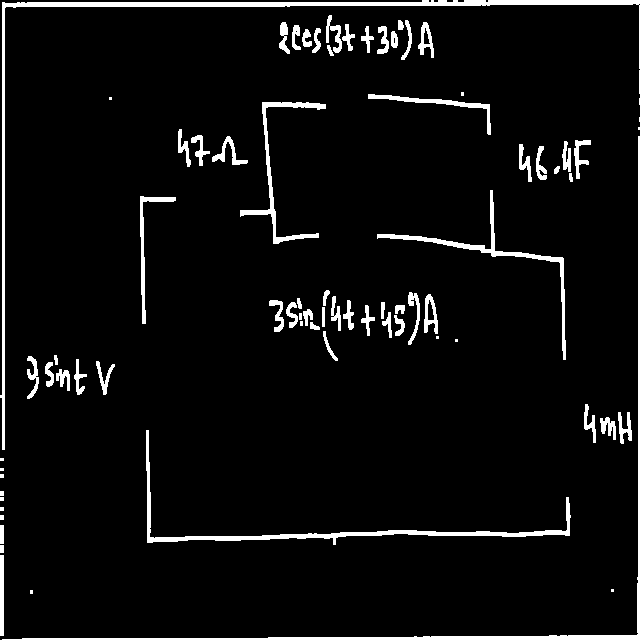 2cos(3t+30°)A
47Ω
46.4F
3sin(4t+45°)A
9sint V
4mH